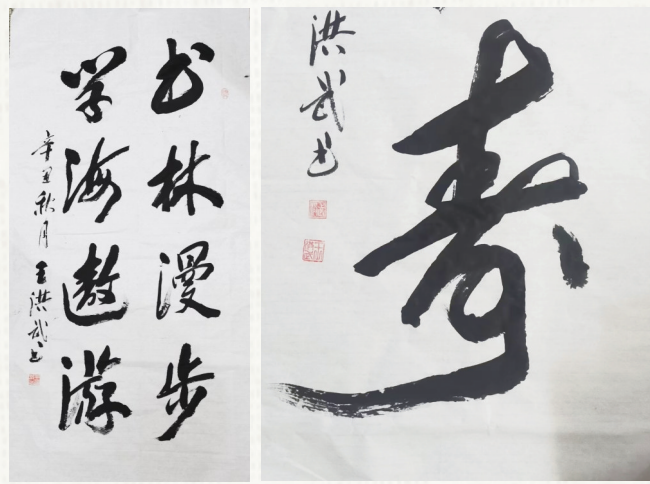 书林漫步
学海遨游
辛丑秋月 王洪武书
寿
洪武书